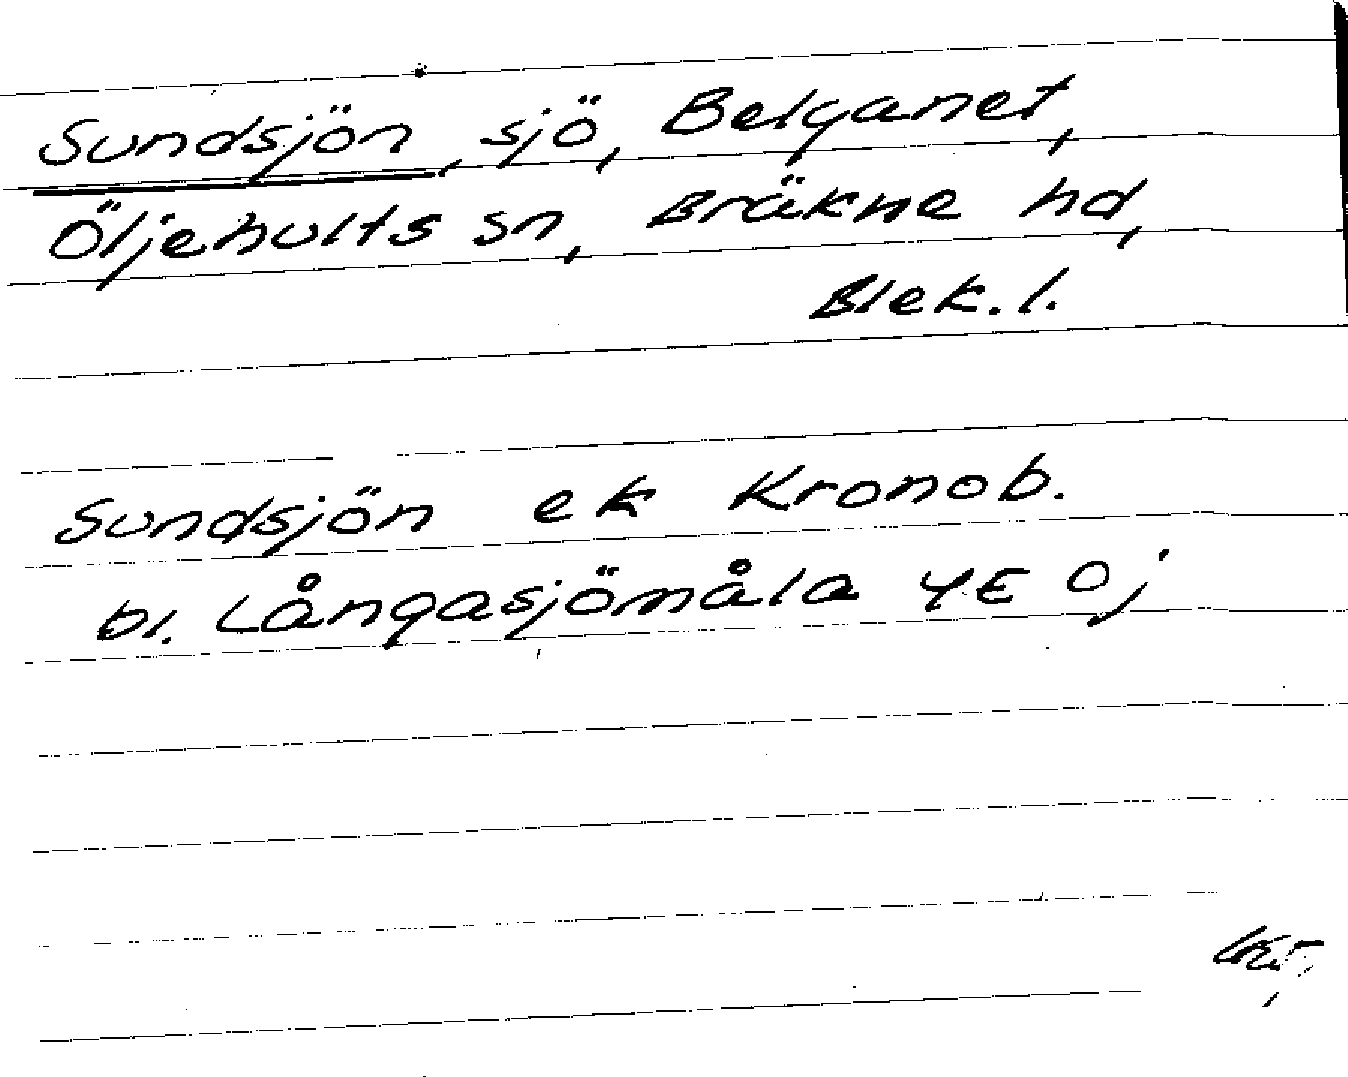 Sundsjön, sjö, Belganet,
Öljehults sn, Bräkne hd,
Blek. l.
Sundsjön ek Kronob.
bl. Långasjömåla 4E Oj